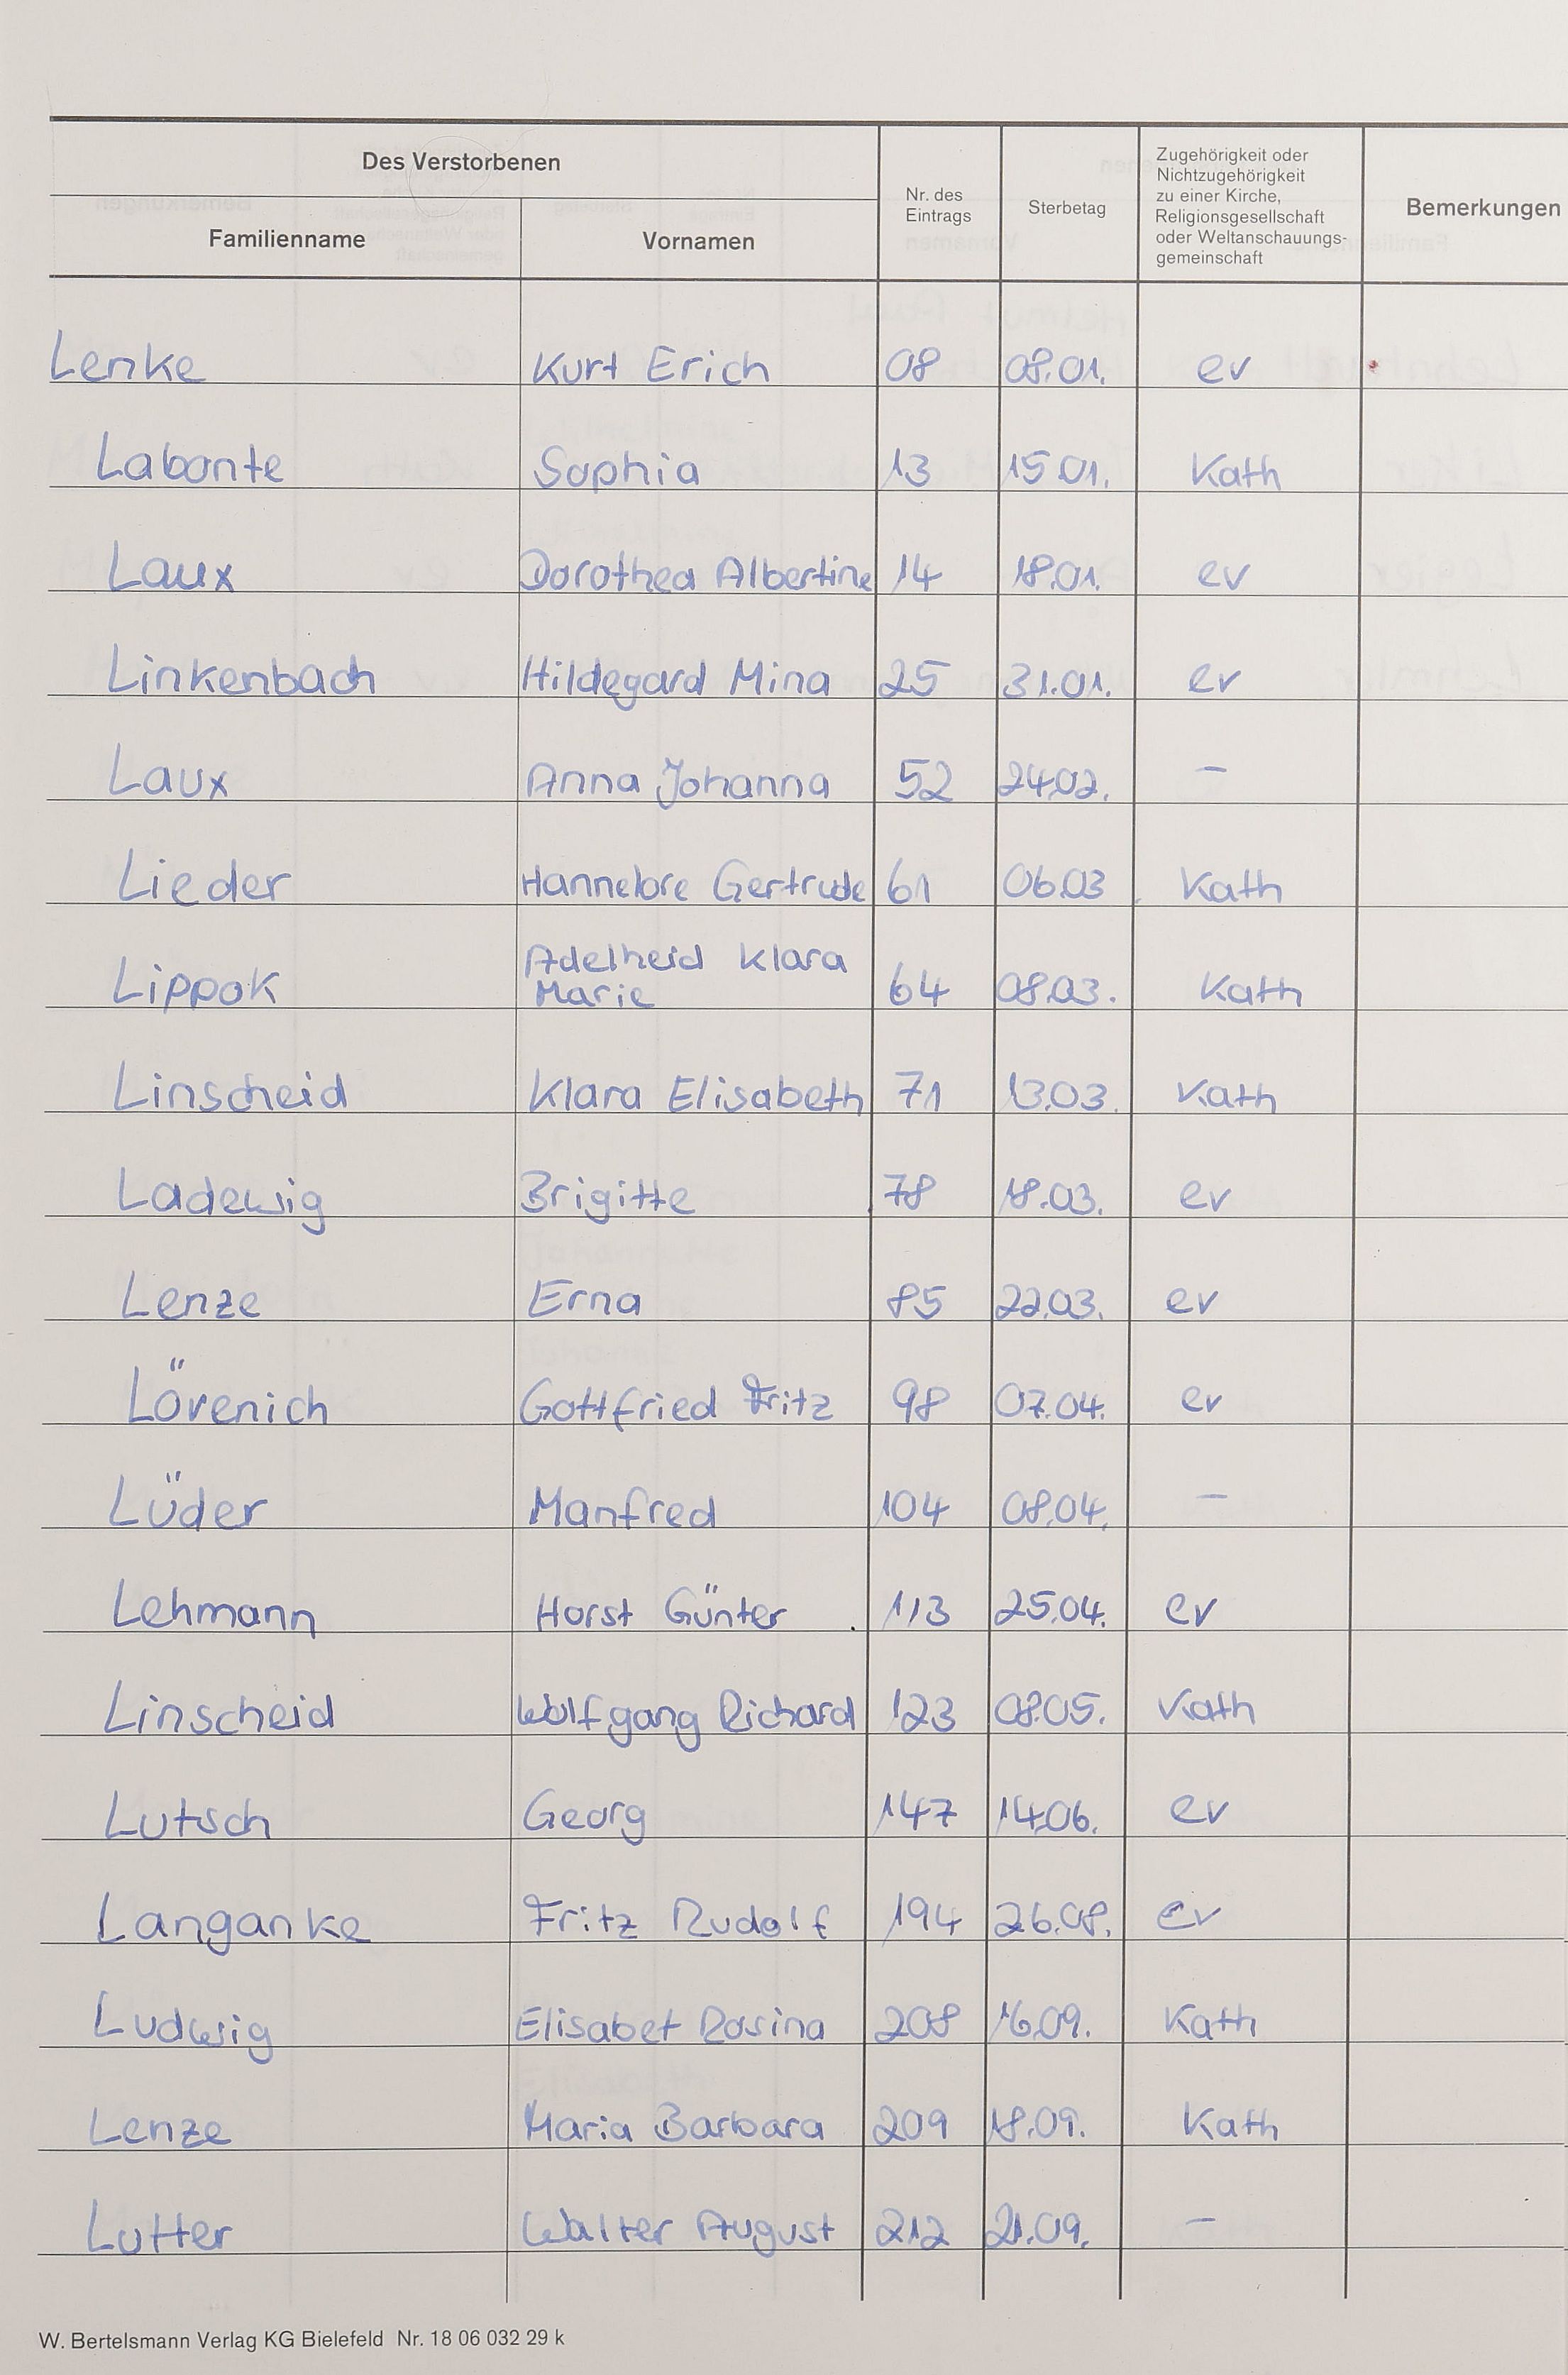 Des Verstorbenen
Familienname Vornamen Nr. des Eintrags Sterbetag Zugehörigkeit oder Nichtzugehörigkeit zu einer Kirche, Religionsgesellschaft oder Weltanschauungs-gemeinschaft Bemerkungen
Lenke Kurt Erich 08 08.01. ev
Labonte Sophia 13 15.01. Kath
Laux Dorothea Albertine 14 18.01. ev
Linkenbach Hildegard Mina 25 31.01. ev
Laux Anna Johanna 52 24.02. –
Lieder Hannelore Gertrude 61 06.03 Kath
Lippok Adelheid Klara Marie 64 08.03. Kath
Linscheid Klara Elisabeth 71 13.03. Kath
Ladewig Brigitte 78 18.03. ev
Lenze Erna 85 22.03. ev
Lövenich Gottfried Fritz 98 07.04. ev
Lüder Manfred 104 08.04. –
Lehmann Horst Günter 113 25.04. ev
Linscheid Wolfgang Richard 123 08.05. Kath
Lutsch Georg 147 14.06. ev
Langanke Fritz Rudolf 194 26.08. ev
Ludwig Elisabet Rosina 208 16.09. Kath
Lenze Maria Barbara 209 18.09. Kath
Lutter Walter August 212 21.09. –
W. Bertelsmann Verlag KG Bielefeld Nr. 18 06 032 29 k